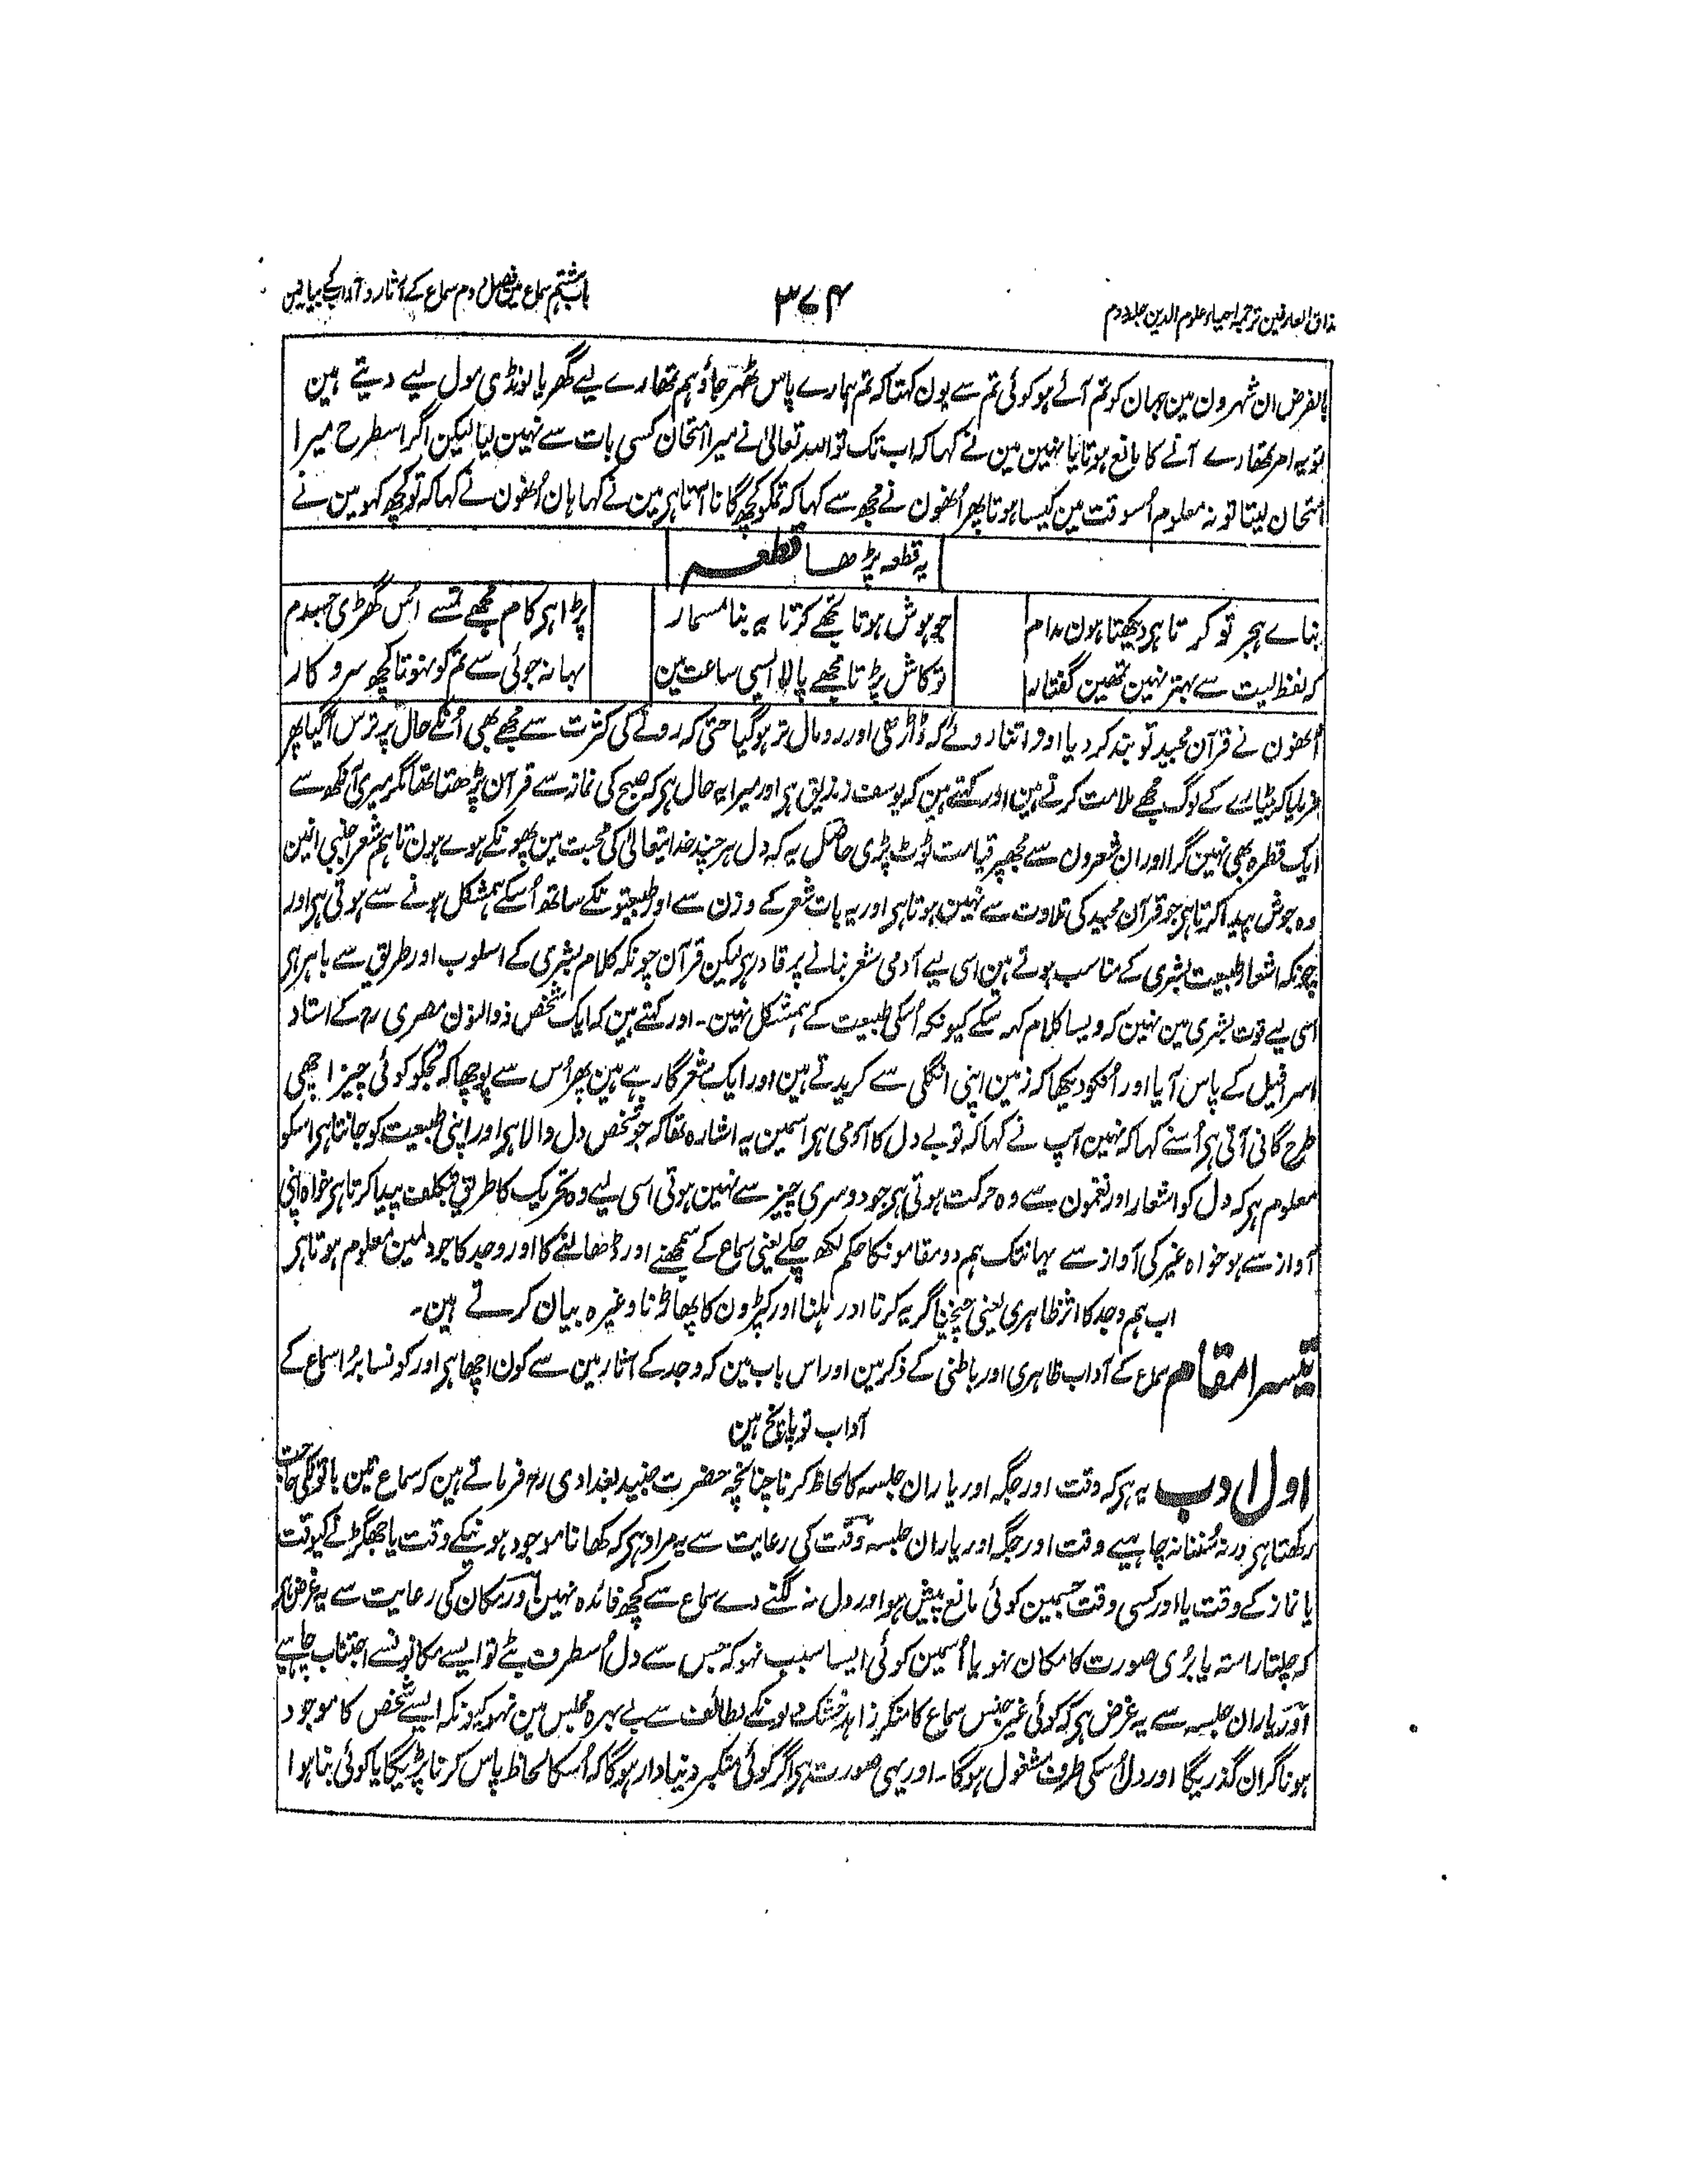 مذاق العارفین ترجمہ احیاء علوم الدین جلد دوم
۳۷۴
باب ہشتم سماع مین فصل دوم سماع کے آثار و آداب کے بیان مین
بالفرض ان شہرون مین جہان کو تم آئے ہو کوئی تم سے یون کہتا کہ تم ہمارے پاس ٹھہر جاؤ ہم تمھارے لیے گھر یا لونڈی مول لیے دیتے ہین
تو یہ امر تمھارے آنے کا مانع ہوتا یا نہین مین نے کہا کہ اب تک تو اللہ تعالیٰ نے میرا امتحان کسی بات سے نہین لیا لیکن اگر اسطرح میرا
امتحان لیتا تو نہ معلوم اُسوقت مین کیسا ہوتا پھر اُنھون نے مجھ سے کہا کہ تمکو کچھ گانا آتا ہی مین نے کہا ہان اُنھون نے کہا کہ تو کچھ کہو مین نے
یہ قطعہ پڑھا قطعہ
بناے ہجر تو کرتا ہی دیکھتا ہون مدام
جو ہوش ہوتا تجھے کرتا یہ بنا مسمار
پڑا ہی کام مجھے تمسے اُس گھڑی جسدم
کہ لفظ لیت سے بہتر نہین تمھین گفتار
تو کاش پڑتا مجھے پالا ایسی ساعت مین
بہانہ جوئی سے تم کو نہوتا کچھ سرو کار
اُنھون نے قرآن مجید تو بند کر دیا اور اتنا روئے کہ ڈاڑھی اور رومال تر ہو گیا حتی کہ رونے کی کثرت سے مجھے بھی اُنکے حال پر ترس آ گیا پھر
فرمایا کہ بیٹا رے کے لوگ مجھے ملامت کرتے ہین اور کہتے ہین کہ یوسف زندیق ہی اور میرا یہ حال ہی کہ صبح کی نماز سے قرآن پڑھتا تھا مگر میری آنکھ سے
ایک قطرہ بھی نہین گرا اور ان شعرون سے مجھپر قیامت ٹوٹ پڑی حاصل یہ کہ دل ہر چند خدا تعالیٰ کی محبت مین پھونکے ہوے ہون تاہم شعر اجنبی انین
وہ جوش پیدا کرتا ہی جو قرآن مجید کی تلاوت سے نہین ہوتا ہی اور یہ بات شعر کے وزن سے اور طبیعتونکے ساتھ اُسکے ہمشکل ہونے سے ہوتی ہی اور
چونکہ اشعار طبیعت بشری کے مناسب ہوتے ہین اسی لیے آدمی شعر بنانے پر قادر ہی لیکن قرآن چونکہ کلام بشری کے اسلوب اور طریق سے باہر ہی
اسی لیے قوت بشری مین نہین کہ ویسا کلام کہہ سکے کیونکہ اُسکی طبیعت کے ہمشکل نہین۔ اور کہتے ہین کہ ایک شخص ذوالنون مصری رح کے استاد
اسرافیل کے پاس آیا اور اُنکو دیکھا کہ زمین اپنی انگلی سے کریدتے ہین اور ایک شعر گا رہے ہین پھر اُس سے پوچھا کہ تجکو کوئی چیز اچھی
طرح گانی آتی ہی اُسنے کہا کہ نہین آپ نے کہا کہ تو بے دل کا آدمی ہی اسمین یہ اشارہ تھا کہ جو شخص دل والا ہی اور اپنی طبیعت کو جانتا ہی اسکو
معلوم ہی کہ دل کو اشعار اور نغمون سے وہ حرکت ہوتی ہی جو دوسری چیز سے نہین ہوتی اسی لیے وہ تحریک کا طریق بتکلف پیدا کرتا ہی خواہ اپنی
آواز سے ہو خواہ غیر کی آواز سے یہانتک ہم دو مقامونکا حکم لکھ چکے یعنی سماع کے سمجھنے اور ڈھالنے کا اور وجد کا جو دلمین معلوم ہوتا ہی
اب ہم وجد کا اثر ظاہری یعنی چیخنا گریہ کرنا اور ہلنا اور کپڑون کا پھاڑنا وغیرہ بیان کرتے ہین۔
تیسرا مقام سماع کے آداب ظاہری اور باطنی کے ذکر مین اور اس باب مین کہ وجد کے آثار مین سے کون اچھا ہی اور کونسا برُا سماع کے
آداب تو پانچ ہین
اول ادب یہ ہی کہ وقت اور جگہ اور یاران جلسہ کا لحاظ کرنا چنانچہ حضرت جنید بغدادی رح فرماتے ہین کہ سماع تین باتونکی حاجت
رکھتا ہی ورنہ سُننا نہ چاہیے وقت اور جگہ اور یاران جلسہ وقت کی رعایت سے یہ مراد ہی کہ کھانا موجود ہونیکے وقت یا جھگڑنے کیوقت
یا نماز کے وقت یا اور کسی وقت جسمین کوئی مانع پیش ہو اور دل نہ لگنے دے سماع سے کچھ فائدہ نہین اور مکان کی رعایت سے یہ غرض ہی
کہ چلتا راستہ یا بُری صورت کا مکان نہو یا اُسمین کوئی ایسا سبب نہو کہ جس سے دل اُسطرف بٹے تو ایسے مکانونسے اجتناب چاہیے
اور یاران جلسہ سے یہ غرض ہی کہ کوئی غیر جنس سماع کا منکر زاہد خشک دلونکے لطائف سے بے بہرہ مجلس مین نہو کیونکہ ایسے شخص کا موجود
ہونا گران گذریگا اور دل اُسکی طرف مشغول ہوگا۔ اور یہی صورت ہی اگر کوئی متکبر دنیا دار ہوگا کہ اُسکا لحاظ پاس کرنا پڑیگا یا کوئی بنا ہوا